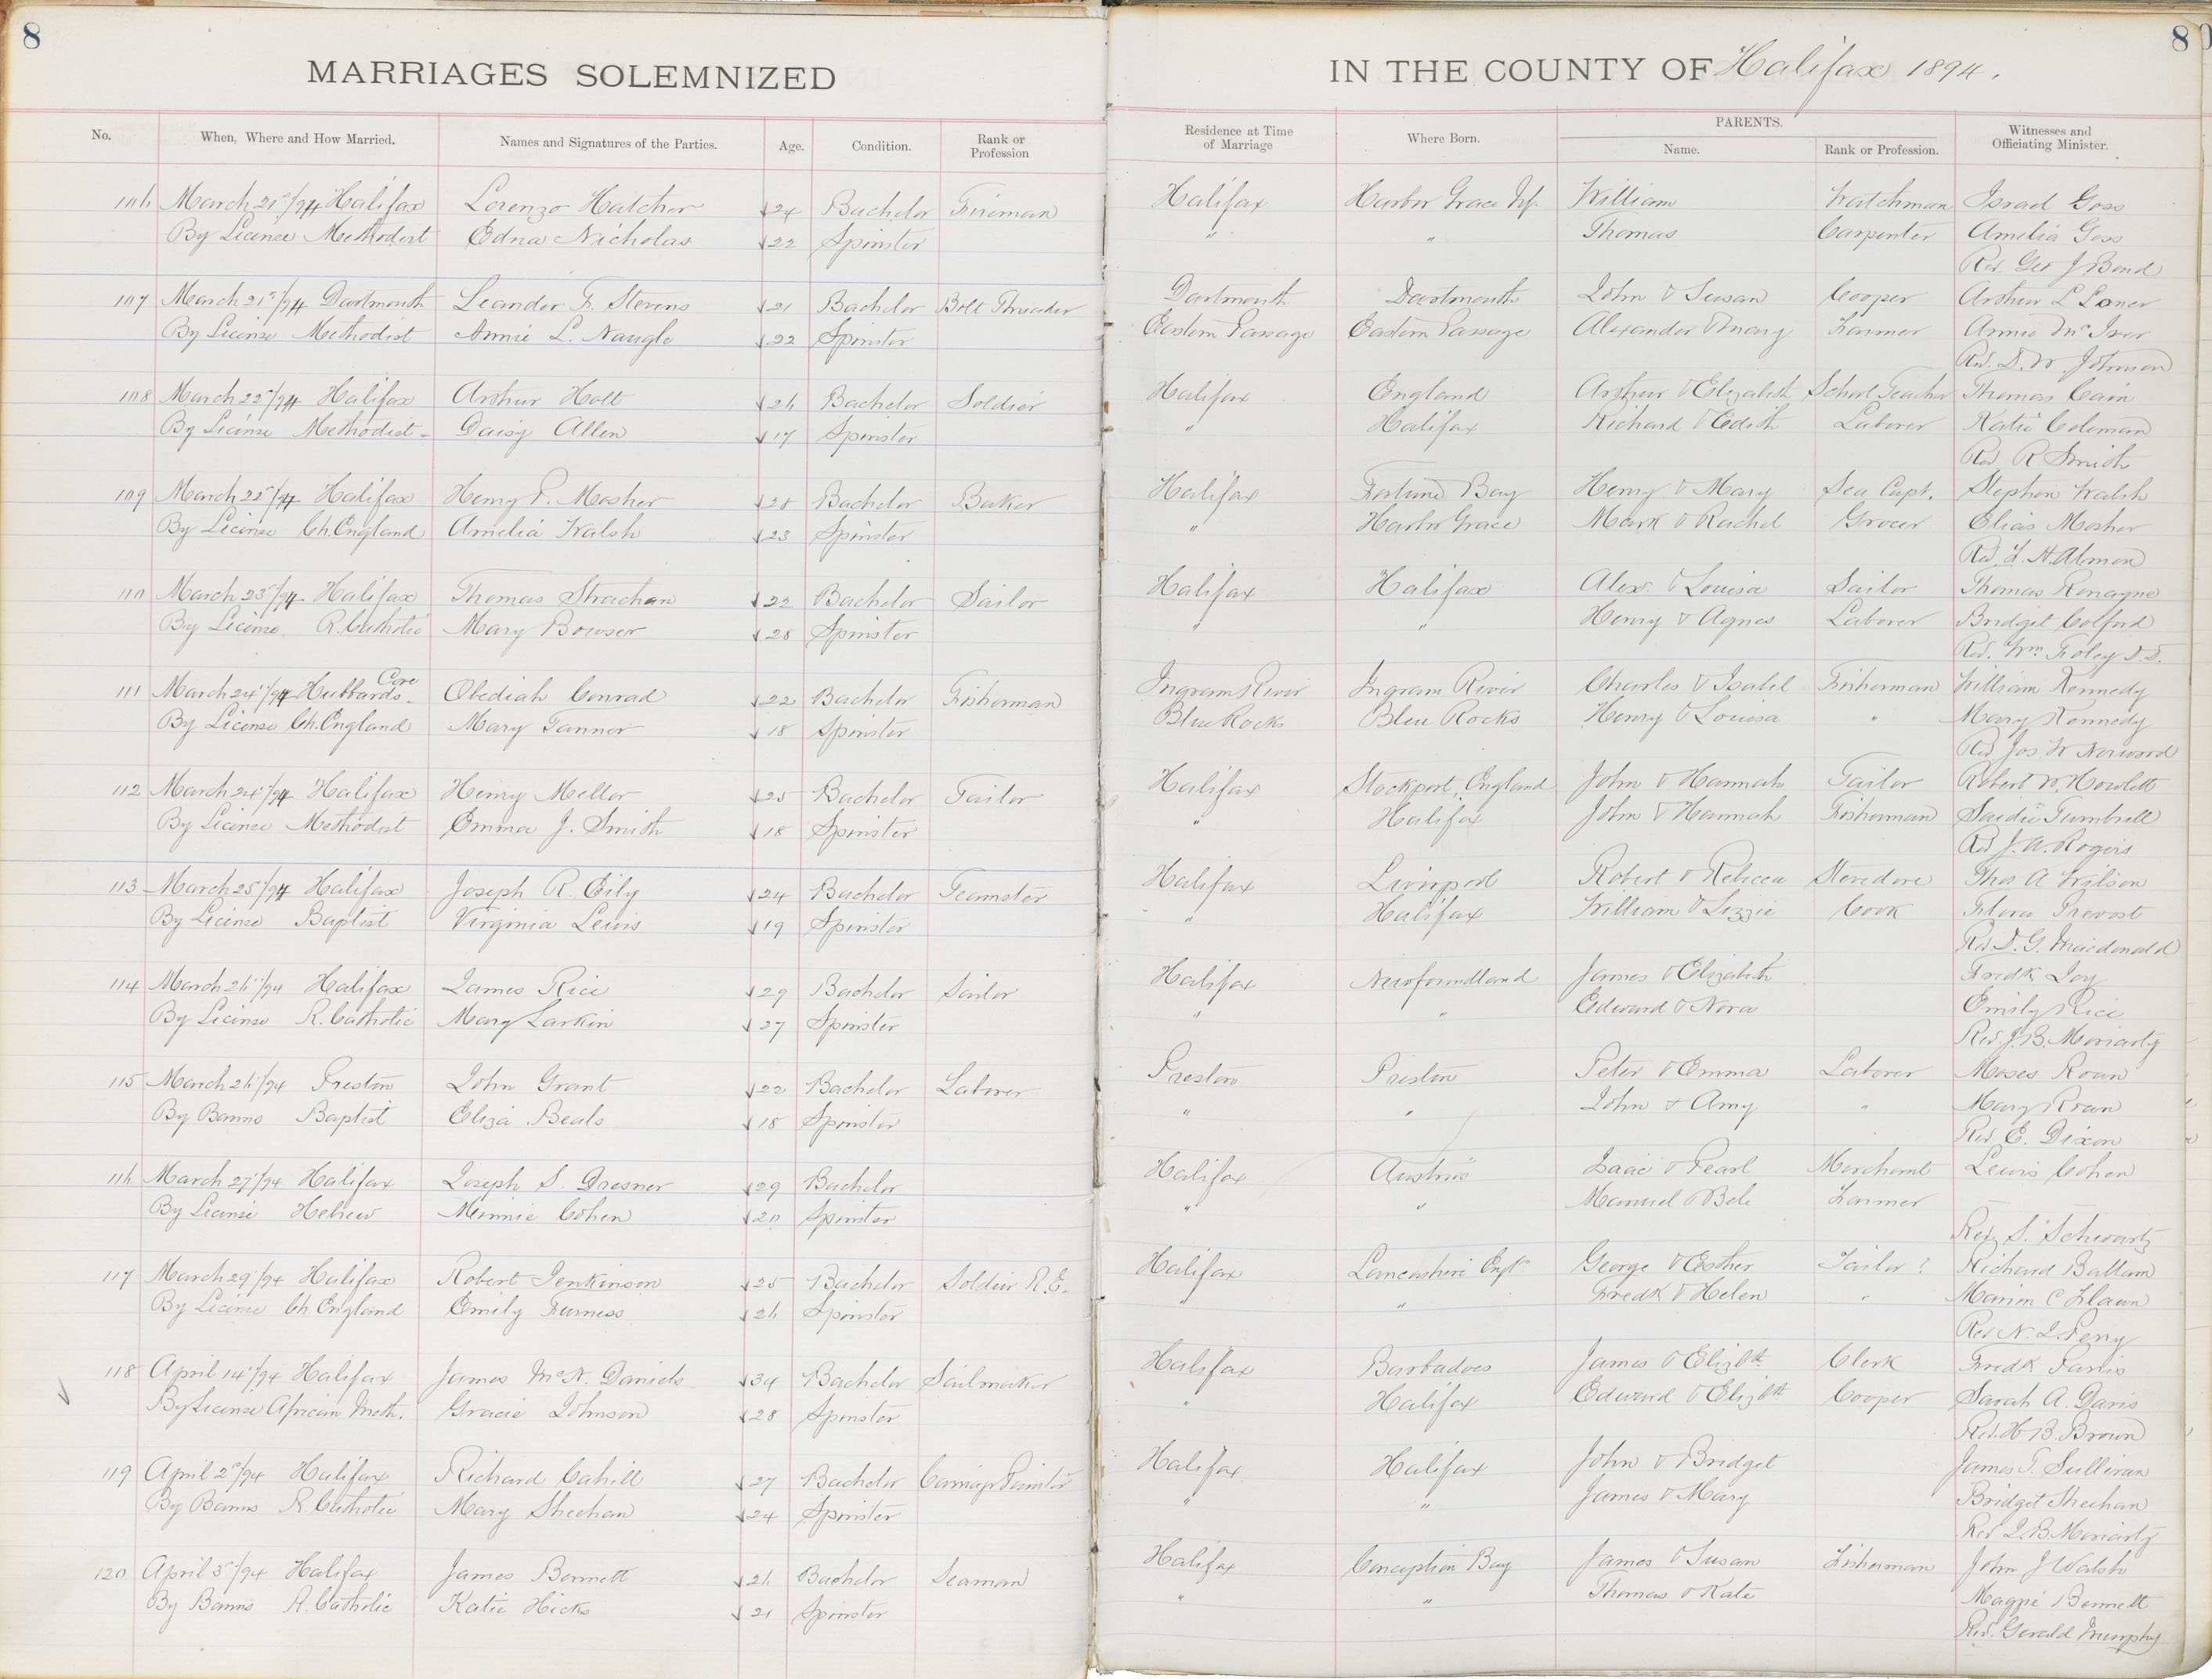 8
MARRIAGES SOLEMNIZED
IN THE COUNTY OF Halifax 1894.
80
No. When, Where and How Married. Names and Signatures of the Parties. Age. Condition. Rank or Profession
Residence at Time of Marriage Where Born. PARENTS. Name. Rank or Profession. Witnesses and Officiating Minister.
106 March 21st/94 Halifax Lorenzo Hatcher 24 Bachelor Fireman Halifax Harbor Grace Nf. William Watchman Israel Goss
By License Methodist Edna Nicholas 22 Spinster " " Thomas Carpenter Amelia Goss
Rev. Geo J Bond
107 March 21st/94 Dartmouth Leander F. Stevens 21 Bachelor Bolt Threader Dartmouth Dartmouth John & Susan Cooper Arthur L
By License Methodist Annie L. Naugle 22 Spinster Eastern Passage Eastern Passage Alexander & Mary Farmer Annie McIver
Rev. D. W. Johnson
108 March 22/94 Halifax Arthur Holt 26 Bachelor Soldier Halifax England Arthur & Elizabeth School Teacher Thomas Cain
By License Methodist Daisy Allen 17 Spinster " Halifax Richard & Edith Laborer Katie Coleman
Rev R Smith
109 March 22/94 Halifax Henry P. Mosher 28 Bachelor Baker Halifax Fortune Bay Henry & Mary Sea Capt. Stephen Walsh
By License Ch. England Amelia Walsh 23 Spinster " Harbor Grace Mark & Rachel Grocer Elias Mosher
Rev. H. Almon
110 March 23/94 Halifax Thomas Strachan 22 Bachelor Sailor Halifax Halifax Alex. & Louisa Sailor Thomas Ronayne
By License R. Catholic Mary Bowser 28 Spinster " " Henry & Agnes Laborer Bridget Colford
Rev. Wm Foley D.D.
111 March 24/94 Hubbards Cove Obediah Conrad 22 Bachelor Fisherman Ingram River Ingram River Charles & Isabel Fisherman William Kennedy
By License Ch. England Mary Tanner 18 Spinster Blue Rocks Blue Rocks Henry & Louisa " Mary Kennedy
Rev Jos W Norwood
112 March 24/94 Halifax Henry Mellor 25 Bachelor Tailor Halifax Stockport, England John & Hannah Tailor Robert W. Howlett
By License Methodist Emma J. Smith 18 Spinster " Halifax John & Hannah Fisherman Sadie Turnbull
Rev J. A. Rogers
113 March 25/94 Halifax Joseph R. Eily 24 Bachelor Teamster Halifax Liverpool Robert & Rebecca Stevedore Thos A Wilson
By License Baptist Virginia Lewis 19 Spinster " Halifax William & Lizzie Cook Flora Prevost
Rev D. G. Macdonald
114 March 26/94 Halifax James Rice 29 Bachelor Sailor Halifax Newfoundland James & Elizabeth Fredk Joy
By License R. Catholic Mary Larkin 27 Spinster " " Edward & Nora Emily Rice
Rev. J. B. Moriarty
115 March 26/94 Preston John Grant 22 Bachelor Laborer Preston Preston Peter & Emma Laborer Moses Roan
By Banns Baptist Eliza Beals 18 Spinster " " John & Amy " Mary Roan
Rev E. Dixon
116 March 27/94 Halifax Joseph S. Dresner 29 Bachelor Halifax Austria Isaac & Pearl Merchant Lewis Cohen
By License Hebrew Minnie Cohen 20 Spinster " " Manuel & Bele Farmer
Rev S. Schwartz
117 March 29/94 Halifax Robert Jenkinson 25 Bachelor Soldier R.E. Halifax Lancashire Engl. George & Esther Tailor ? Richard Ballam
By License Ch England Emily Furness 26 Spinster " " Fredk & Helen " Marion C
Rev N. I. Perry
118 April 14/94 Halifax James McN. Daniels 34 Bachelor Sailmaker Halifax Barbadoes James & Elizbth Clerk Fredk Farris
By License African Meth. Gracie Johnson 28 Spinster " Halifax Edward & Elizbth Cooper Sarah A. Davis
Rev. H B. Brown
119 April 2nd/94 Halifax Richard Cahill 27 Bachelor Carriage Painter Halifax Halifax John & Bridget James T. Sullivan
By Banns R Catholic Mary Sheehan 24 Spinster " " James & Mary Bridget Sheehan
Rev J. B. Moriarty
120 April 3/94 Halifax James Bennett 26 Bachelor Seaman Halifax Conception Bay James & Susan Fisherman John J Walsh
By Banns R. Catholic Katie Hicks 21 Spinster " " Thomas & Kate Maggie Bennett
Rev. Gerald Murphy